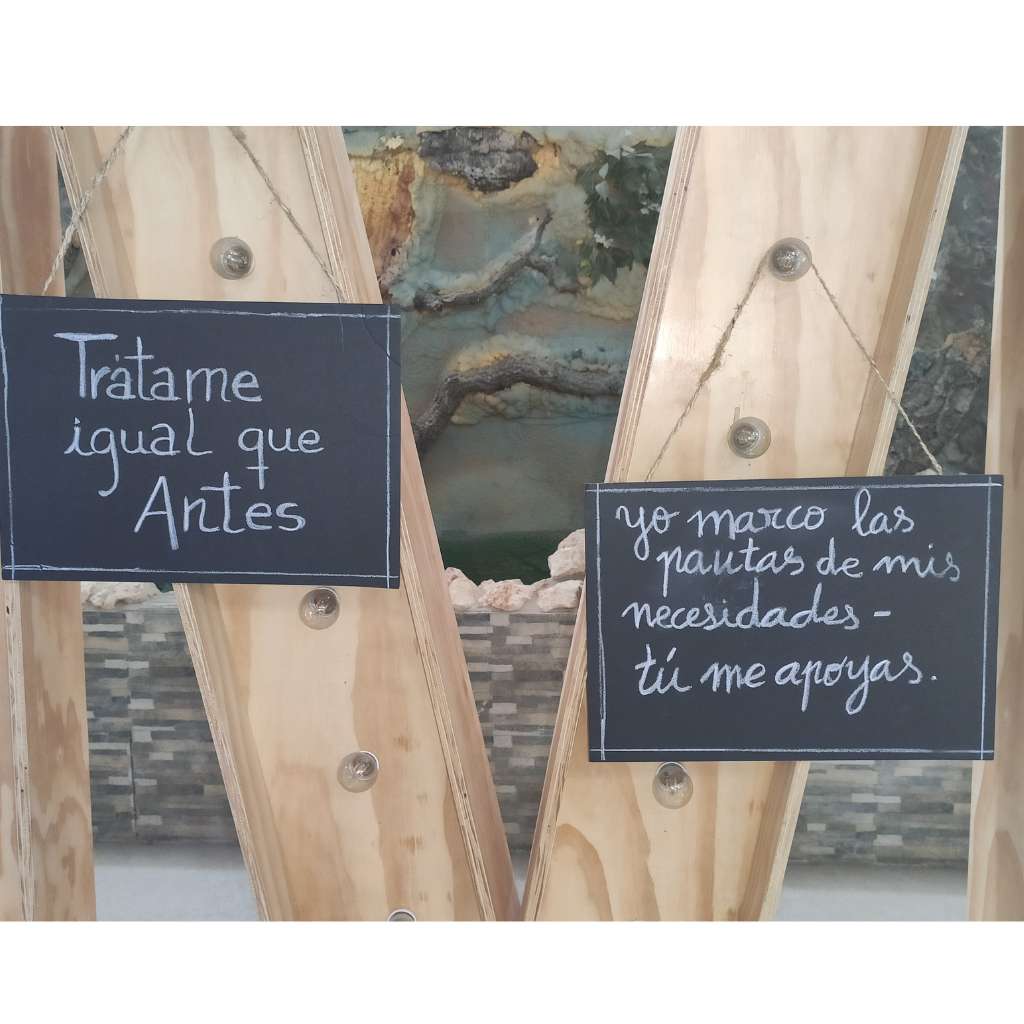 Trátame
igual que
Antes
yo marco las
pautas de mis
necesidades -
tú me apoyas.